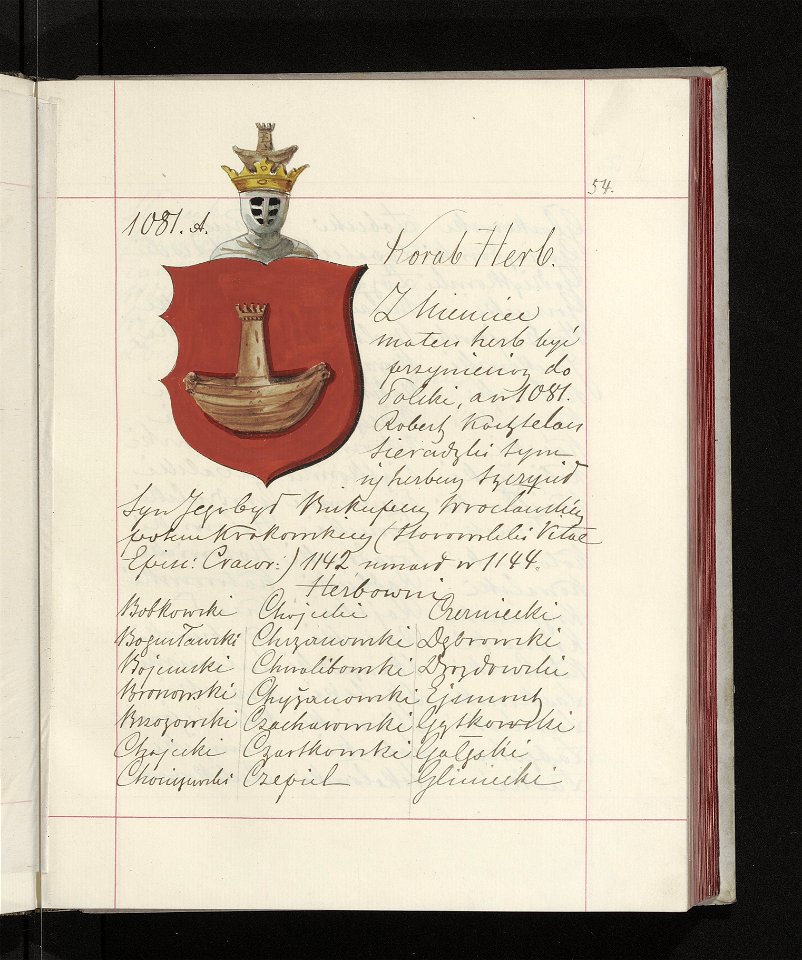 54.
1081. A.
Korab Herb.
Z Niemiec
maten herb być
przyniesiony do
Polski, a w 1081.
Robert Kasztelan
Sieradzki tym
herbem szczycił
Syn Jego był Biskupem Wrocławskim
potem Krakowskim (Starowolski Vitae
Episc: Cracov:) 1142 umarł w 1144.
Herbowni
Bobkowski Chojecki Czerniecki
Bogusławski Chrzanowski Dąbrowski
Bojemski Chwalibowski Drozdowski
Bronowski Chyżanowski Ejsmont
Brzozowski Czacharowski Gątkowski
Chojecki Czartkowski Gałęski
Czepiel Gliniecki